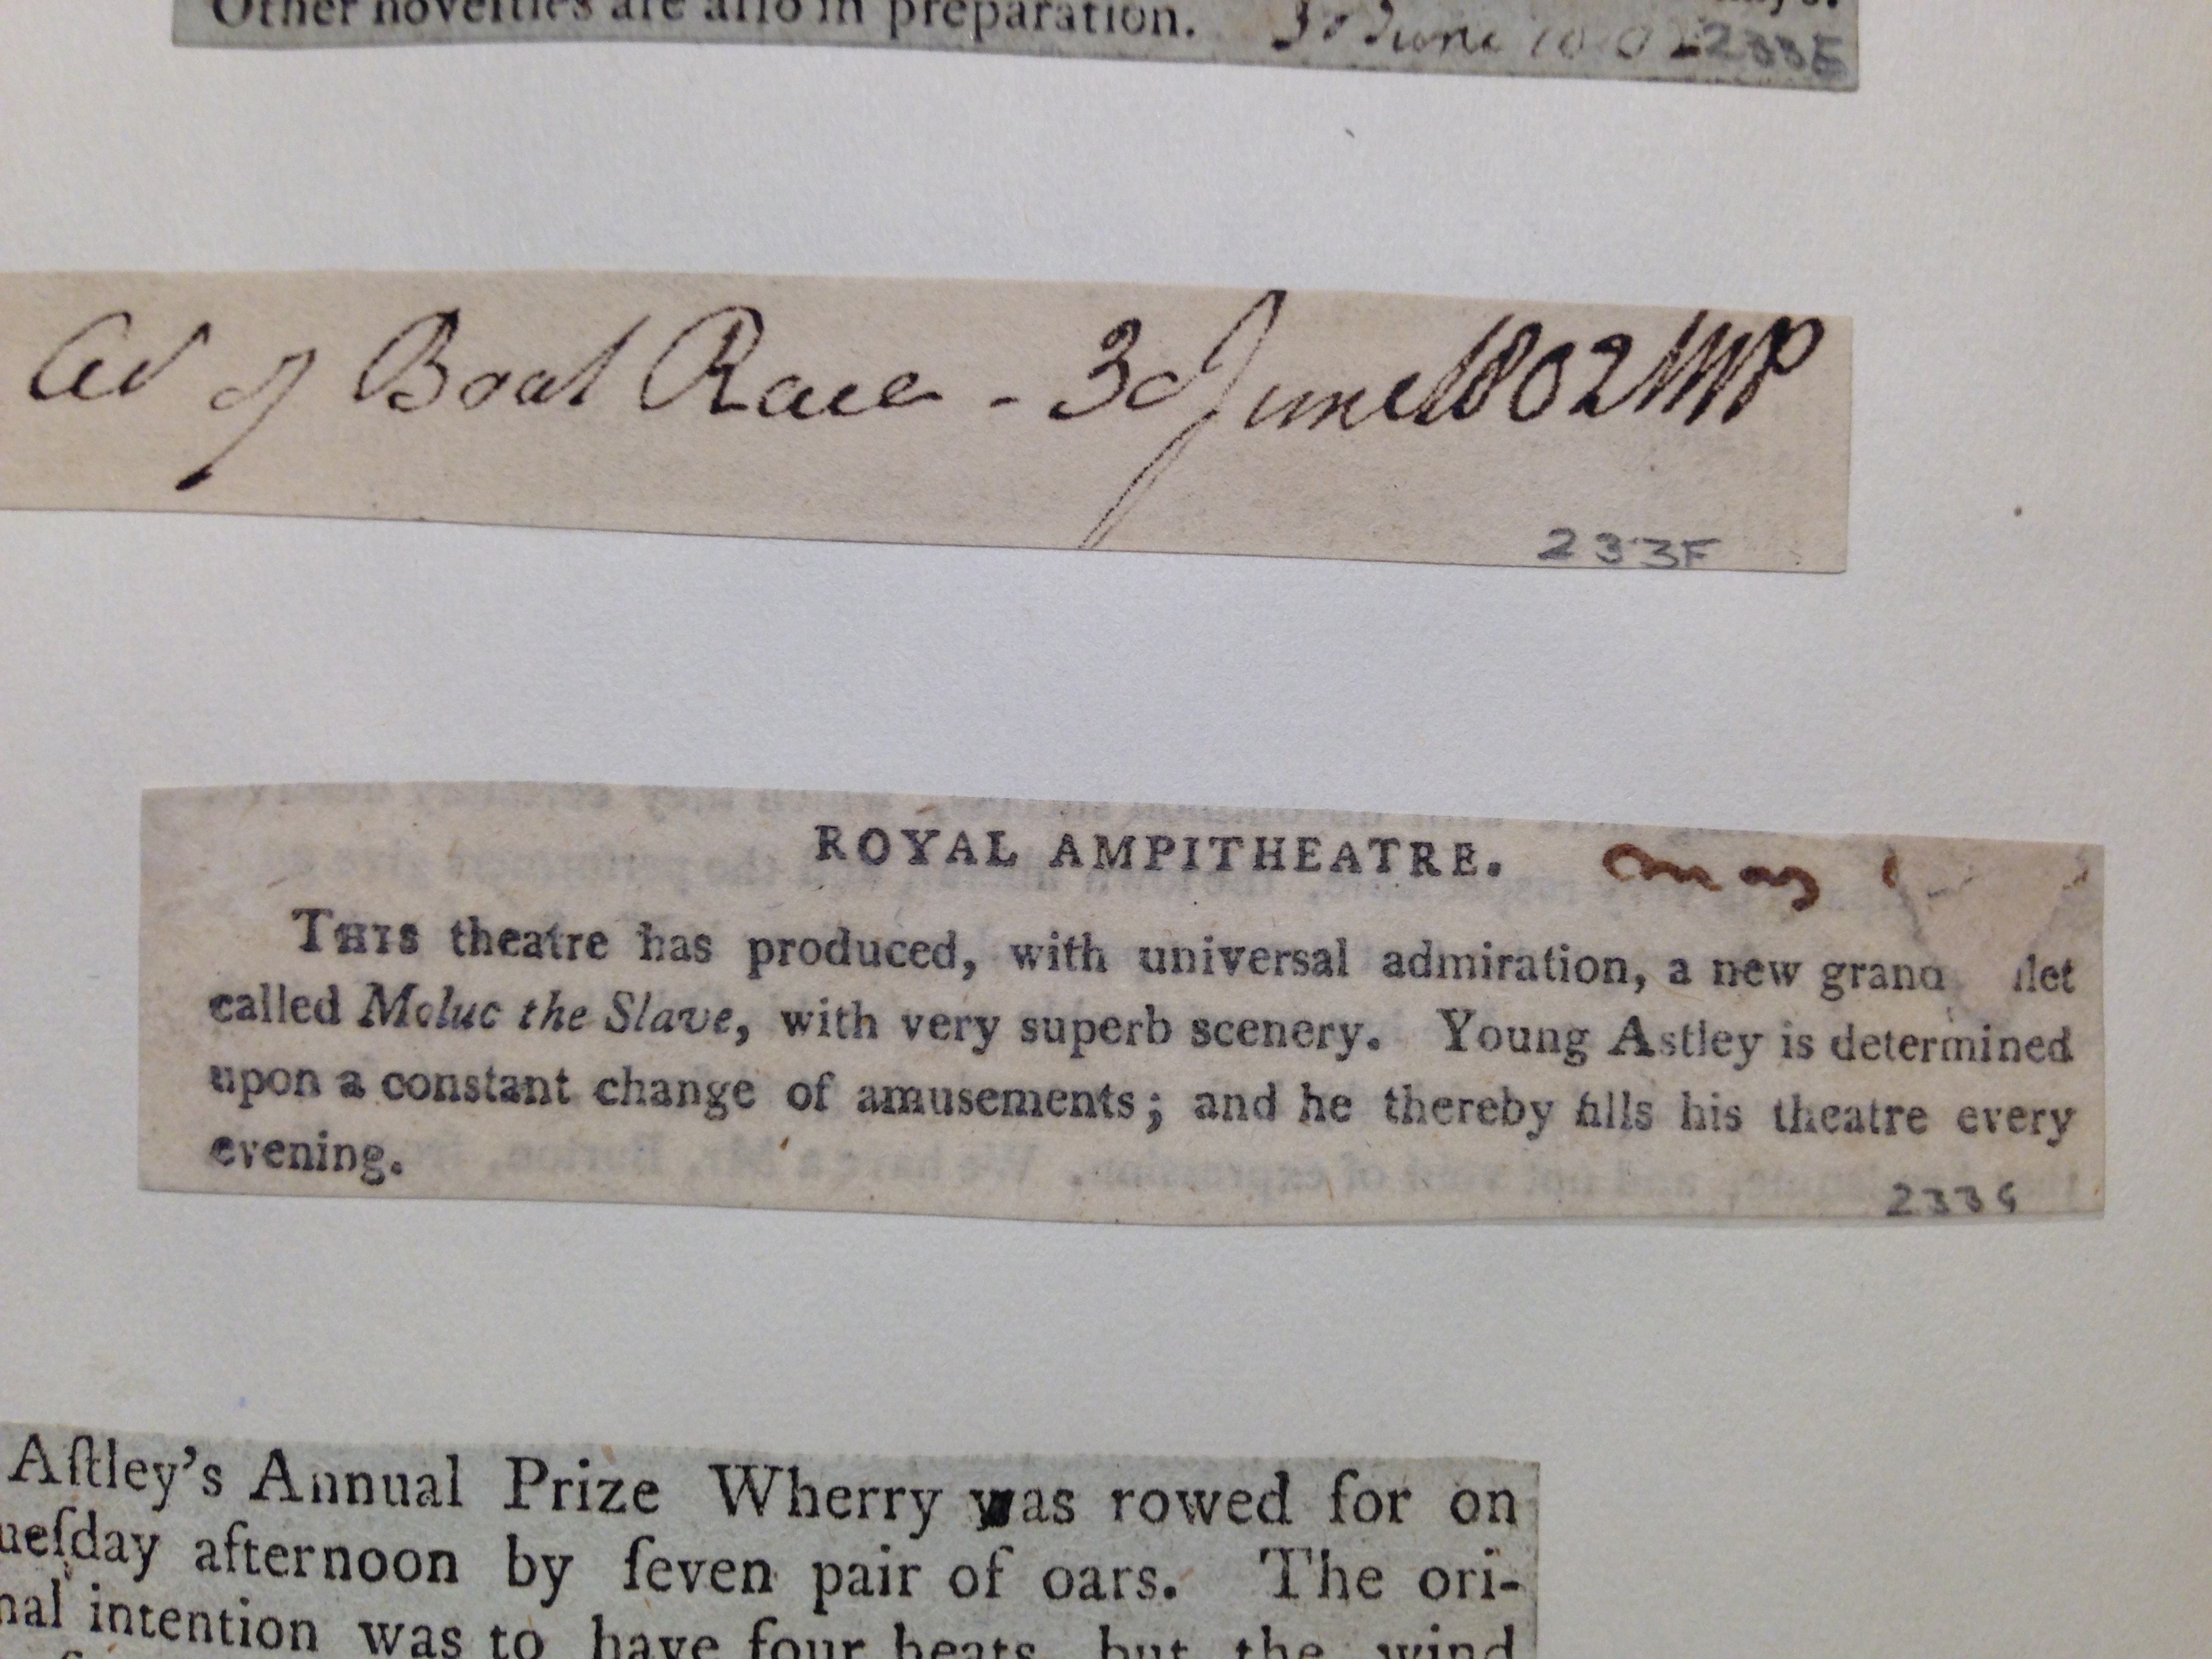 Other novelties are alſo in preparation. June 233E
Ad of Boat Race - 3d June 1802 MP
233F
ROYAL AMPITHEATRE. May
THIS theatre has produced, with universal admiration, a new grand let
called Moluc the Slave, with very superb scenery. Young Astley is determined
upon a constant change of amusements; and he thereby fills his theatre every
evening.
233G
Aſtley's Annual Prize Wherry was rowed for on
ueſday afternoon by ſeven pair of oars. The ori-
nal intention was to have four heats, but the wind